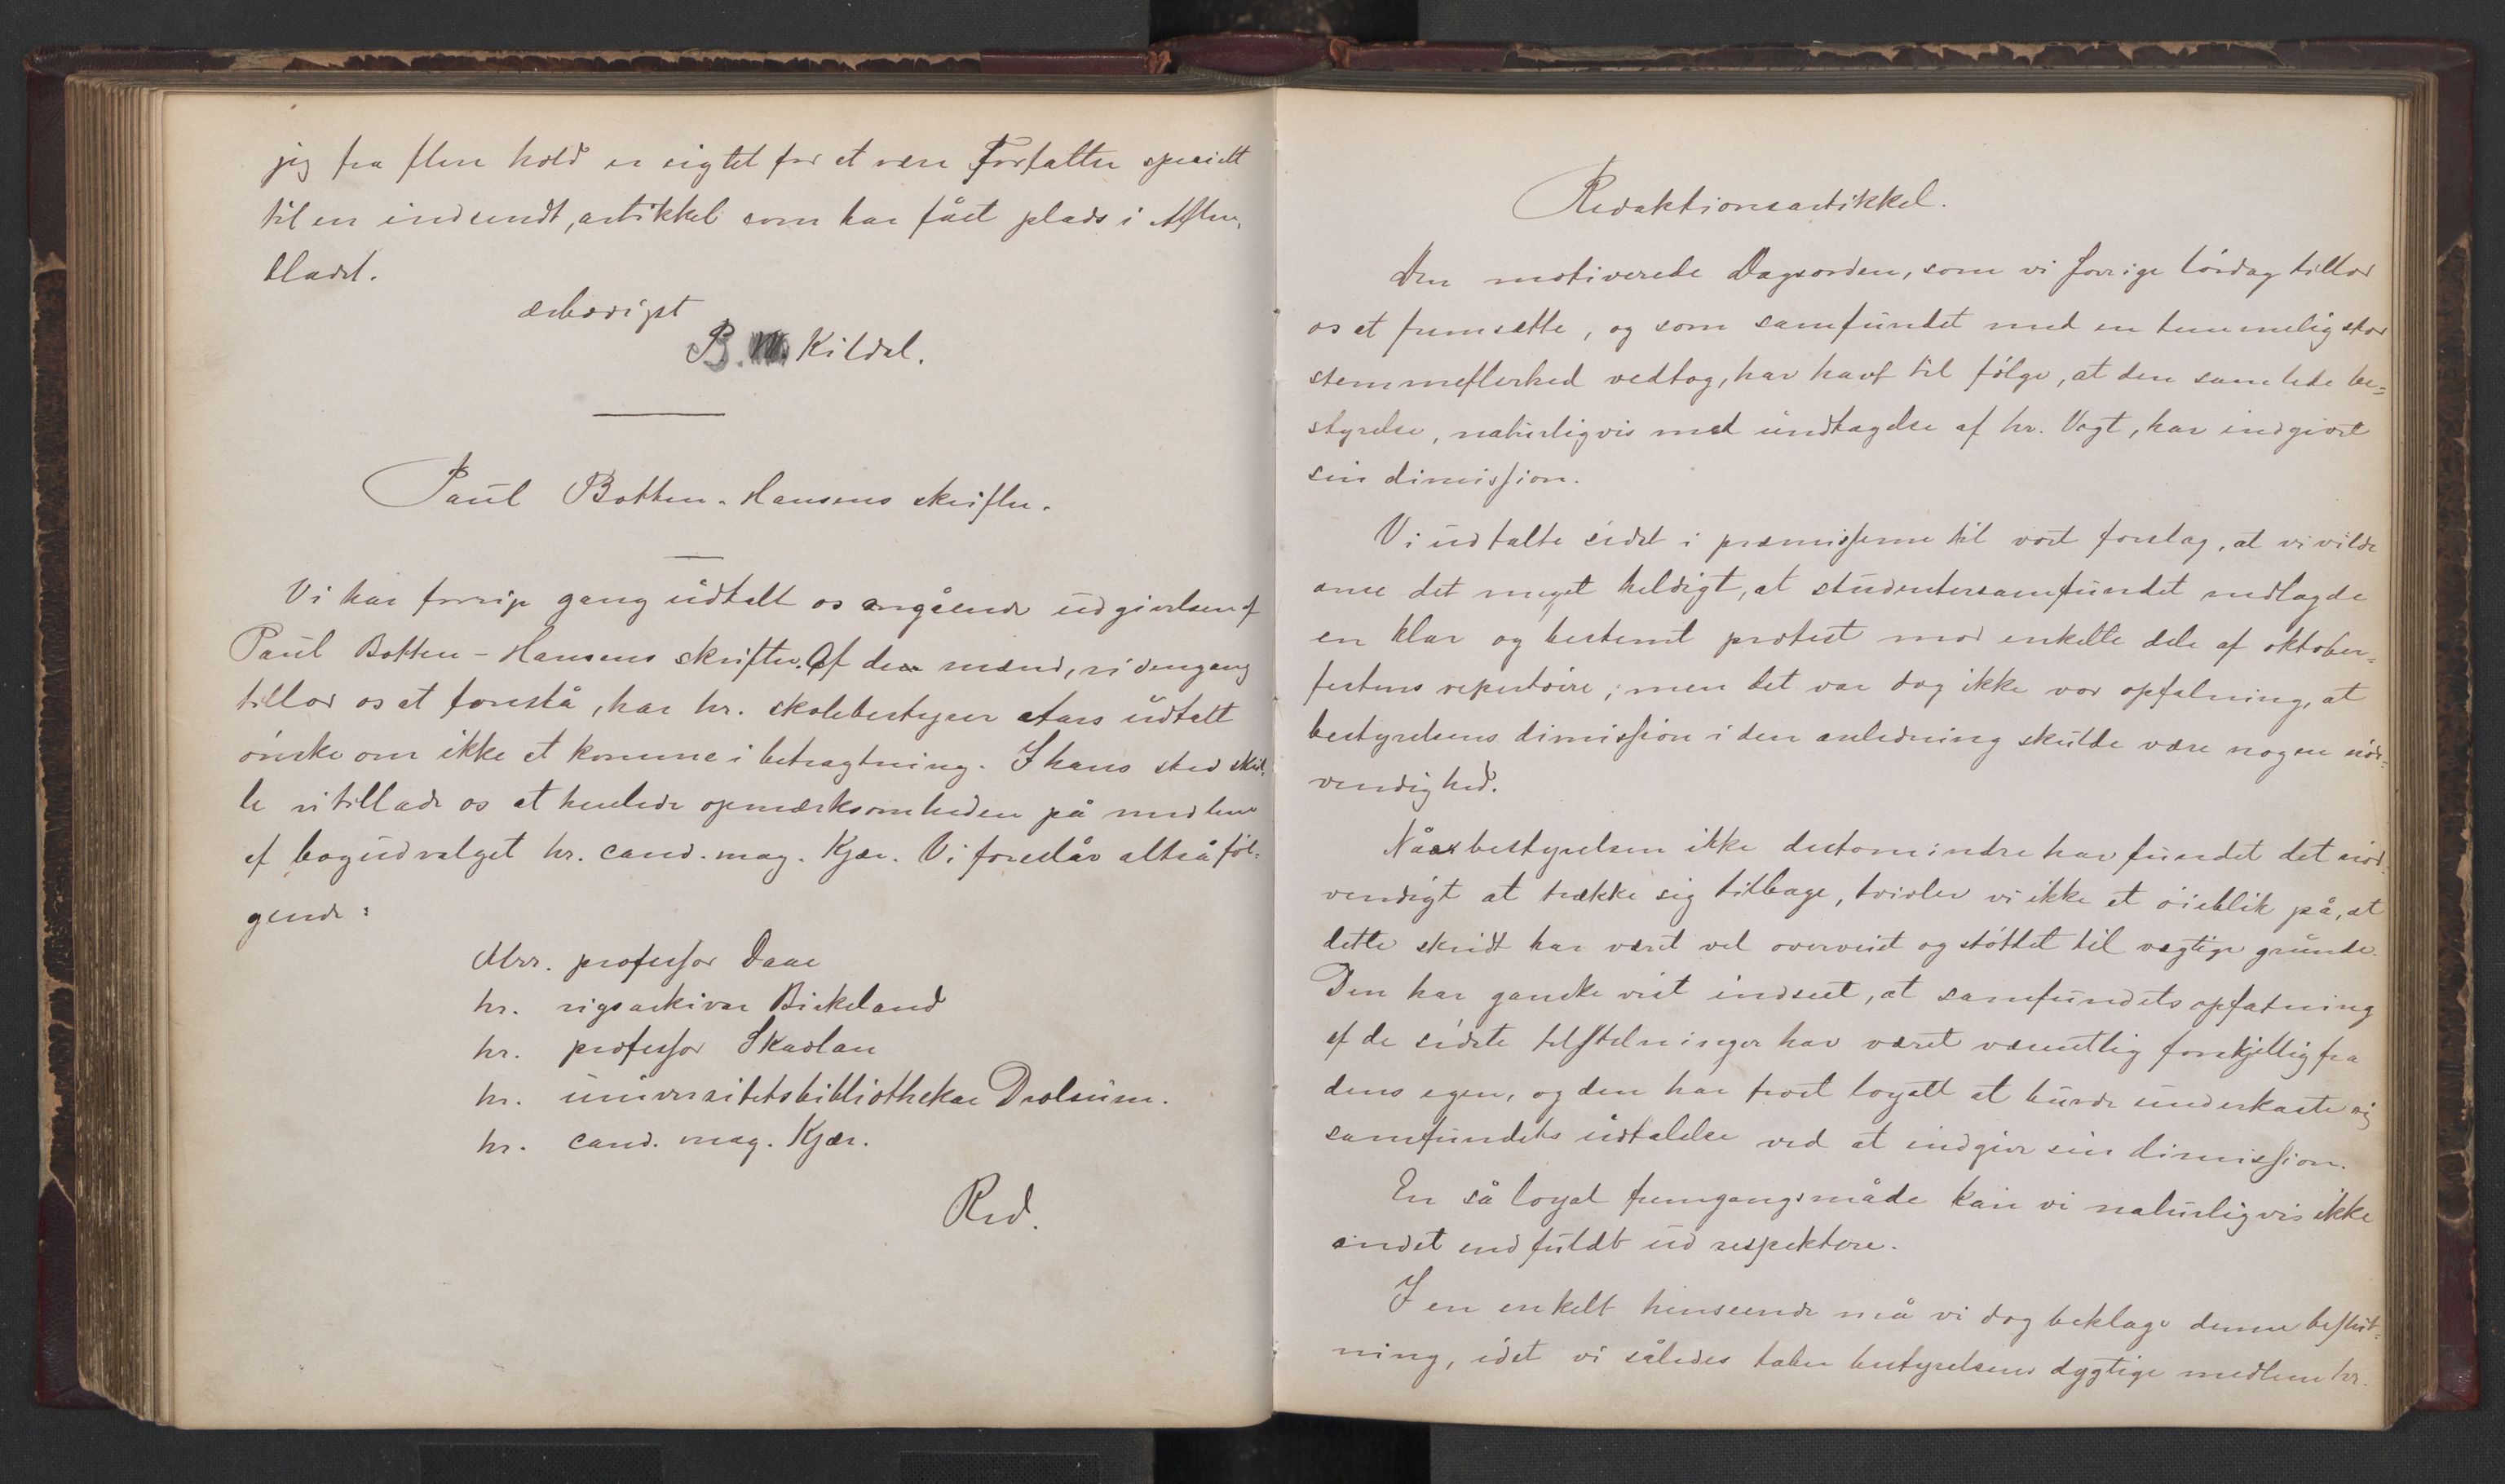 jeg fra flere hold er sigtet for at være Forfatter specielt
til en indsendt, artikkel som har fået plads i Aften-
bladet.
ærbødigst
B. M. Kildal.
Paul Botten-Hansens skrifter.
Vi har forrige gang udtalt os angående udgivelsen af
Paul Botten-Hansens skrifter. Af den mænd, vi dengang
tillod os at foreslå, har hr. skolebestyrer Aars udtalt
ønske om ikke at komme i betragtning. I hans sted skul-
le vi tillade os at henlede opmærksomheden på medlem
af bogudvalget hr. cand. mag. Kjær. Vi foreslår altså føl-
gende:
Hrr. professor Daae
hr. rigsarkivar Birkeland
hr. professor Skavlan
hr. universitetsbibliothekar Drolsum.
hr. cand. mag. Kjær.
Red.
Redaktionsartikkel.
Den motiverede Dagsorden, som vi forrige lørdag tillod
os at fremsætte, og som samfundet med en temmelig stor
stemmeflerhed vedtog, har havt til følge, at den samlede be-
styrelse, naturligvis med undtagelse af hr. Vogt, har indgivet
sin dimission.
Vi udtalte sidst i præmisserne til vort forslag, at vi vilde
anse det meget heldigt, at studentersamfundet nedlagde
en klar og bestemt protest mod enkelte dele af oktober-
festens repertoire; men det var dog ikke vor opfatning, at
bestyrelsens dimission i den anledning skulde være nogen nød-
vendighed.
Når bestyrelsen ikke destomindre har fundet det nød-
vendigt at trække sig tilbage, tvivler vi ikke et øieblik på, at
dette skridt har været vel overveiet og støttet til vægtige grunde.
Den har ganske vist indseet, at samfundets opfatning
af de sidste tilstelninger har været væsentlig forskjellig fra
dens egen, og den har troet loyalt at burde underkaste sig
samfundets udtalelse ved at indgive sin dimission.
En så loyal fremgangsmåde kan vi naturligvis ikke
andet end fuldt ud respektere.
I en enkelt henseende må vi dog beklage denne beslut-
ning, idet vi således taber bestyrelsens dygtige medlem hr.